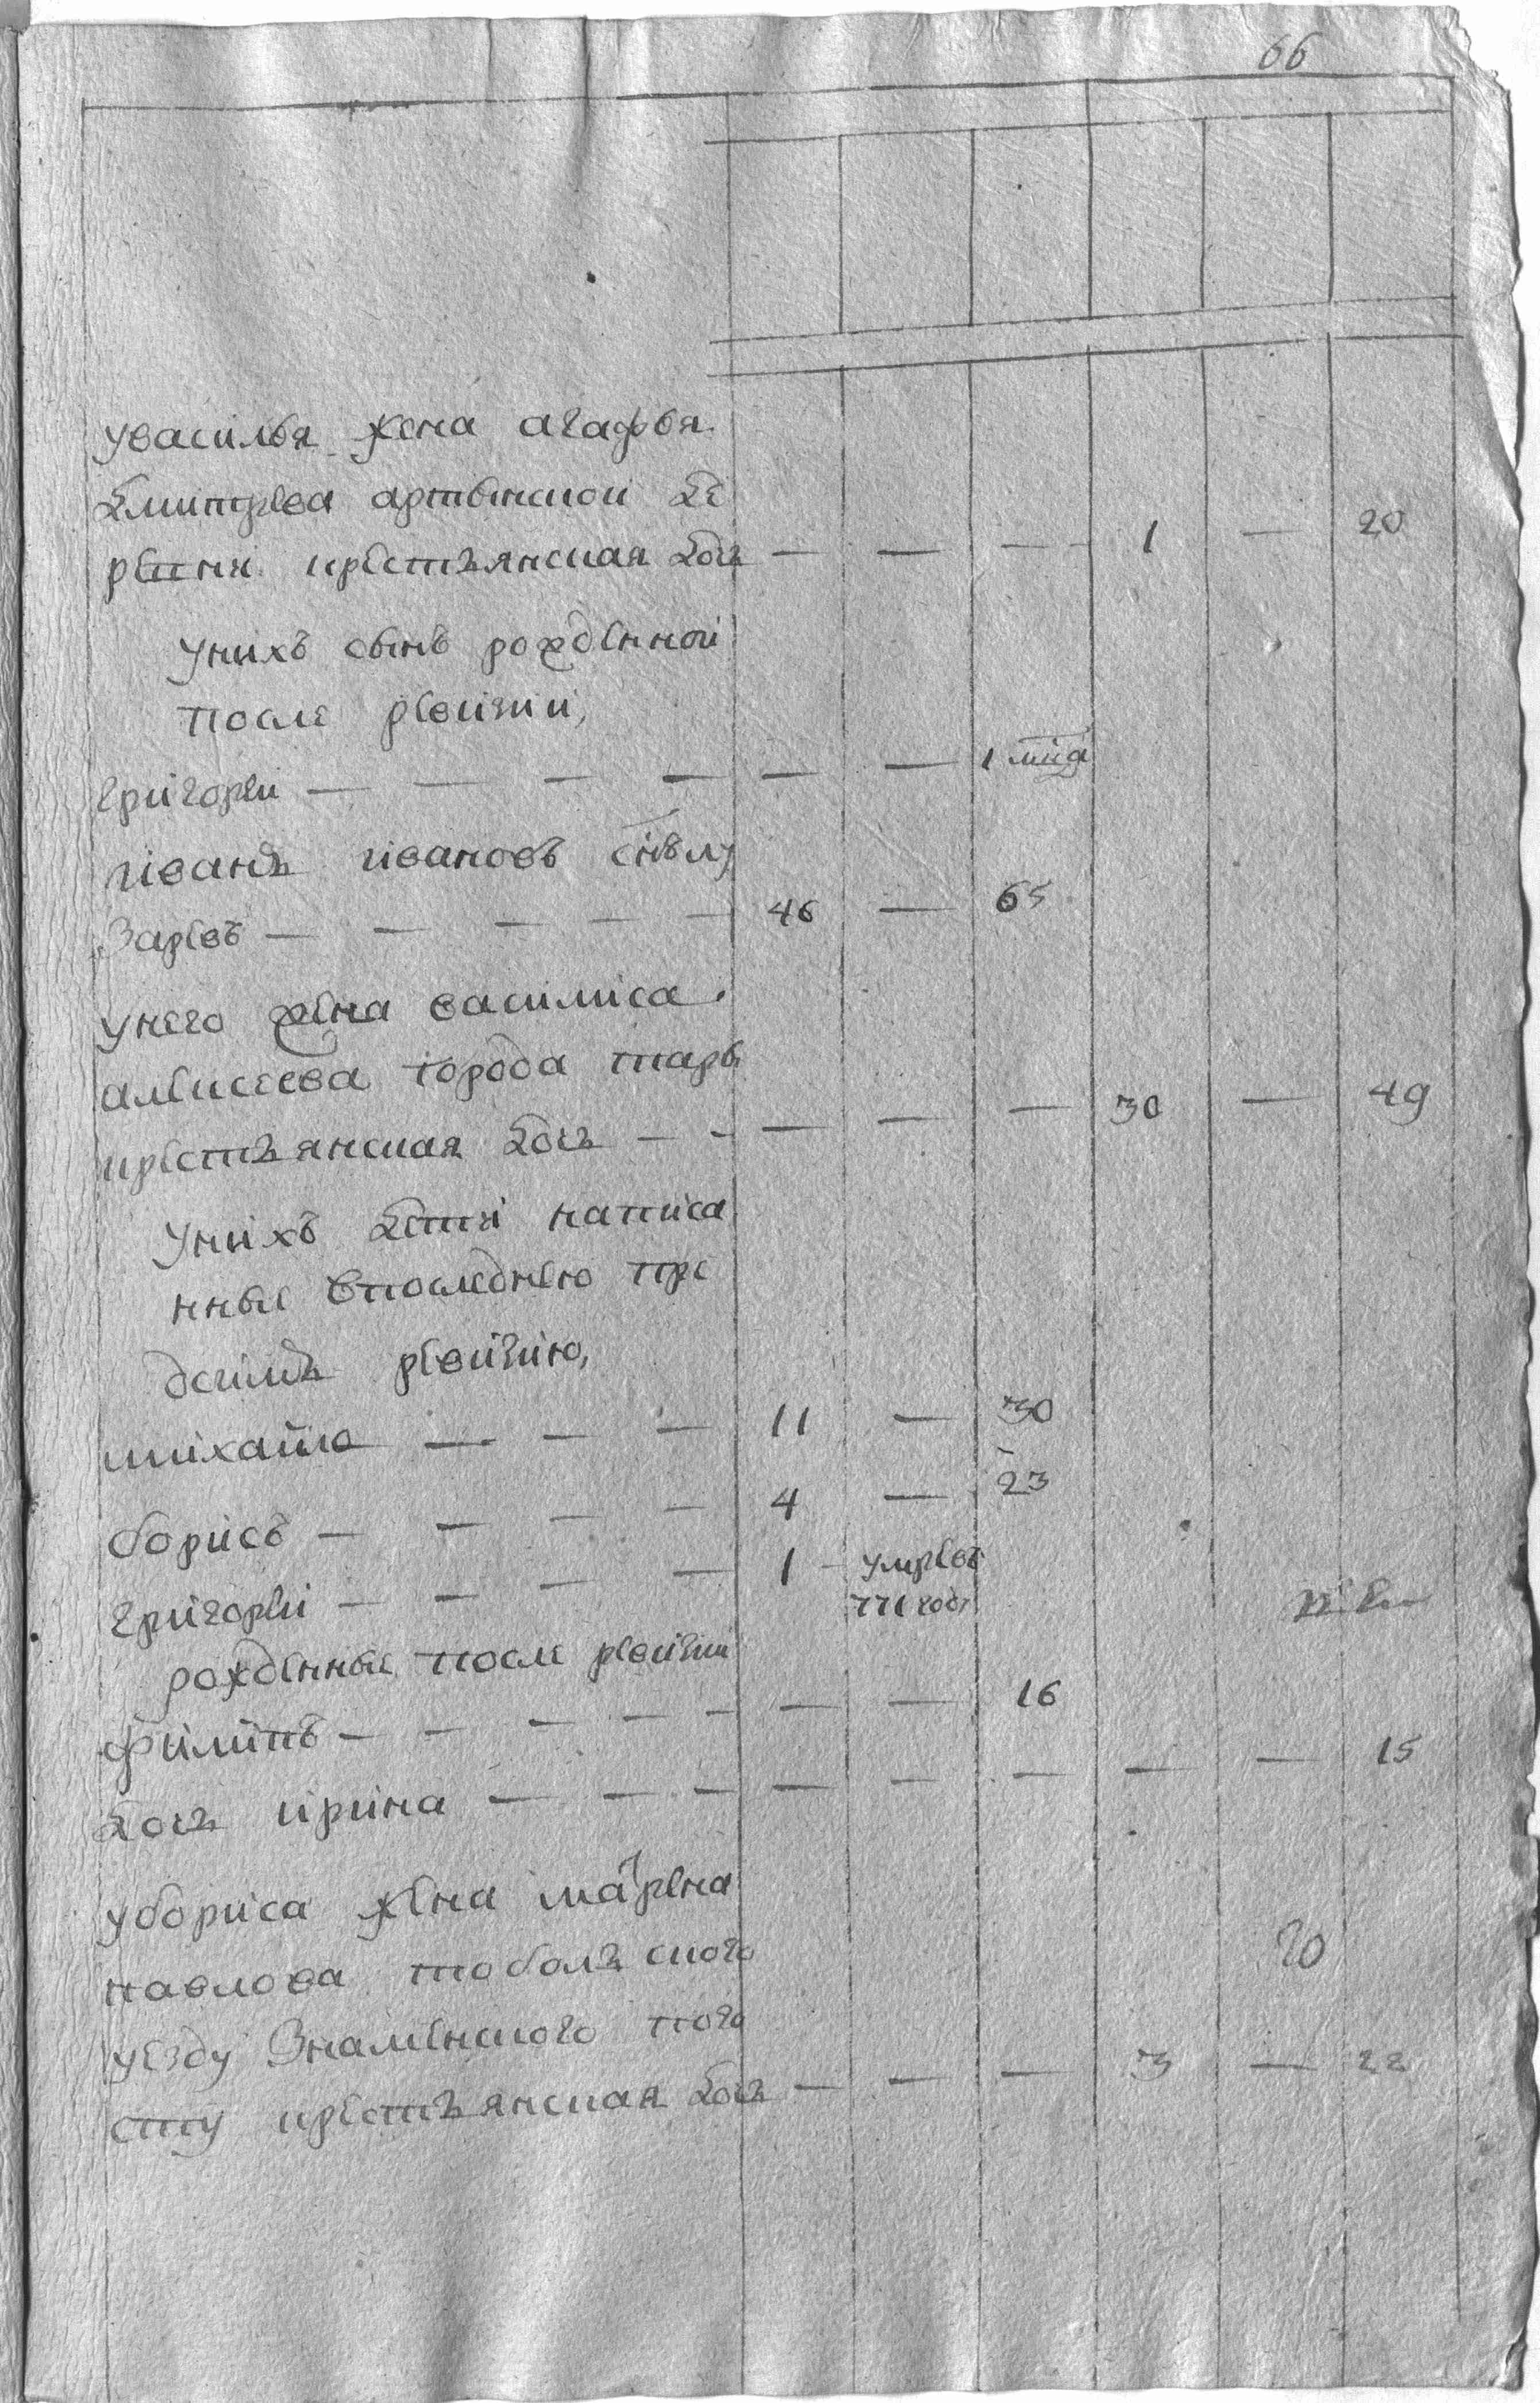 66
увасилья жена агафья
дмитрева артынской де
ревни крестьянская дочь — — — 1 — 20
унихъ сынъ рожденной
после ревизии,
григореи — — — — — — 1 мца
иванъ ивановъ снъ лу
заревъ — — — — — 46 — 65
унего жена василиса
алексеева города тары
крестьянская дочь — — — — — 30 — 49
унихъ дети написа
нные впоследнею пре
дсимъ ревизию,
михаило — — — 11 — 30
борисъ — — — — 4 — 23
григореи — — — — 1 умревъ
771 году
рожденные после ревизии
филипъ — — — — — — — 16
дочь ирина — — — — — — — — 15
убориса жена матрена
павлова тобольского
20
уезду знаменского пого
сту крестьянская дочь — — — 3 — 22